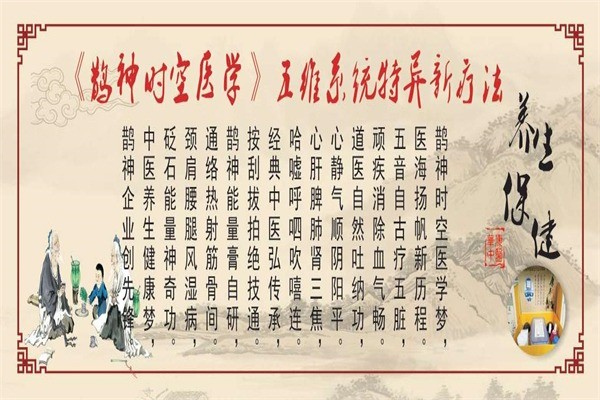 《鹊神时空医学》五维系统特异新疗法
养生保健
鹊神时空医学梦，
医海扬帆新历程；
五音自古疗五脏，
顽疾消除血气畅。
道医自然吐纳功，
心静气顺阴阳平。
心肝脾肺肾三焦，
哈嘘呼呬吹嘻连。
经典中医弘传承，
按刮拔拍绝技通。
鹊神能量膏自研，
通络热射筋骨间。
颈肩腰腿风湿病，
砭石能量神奇功。
中医养生健康梦，
鹊神企业创先锋。